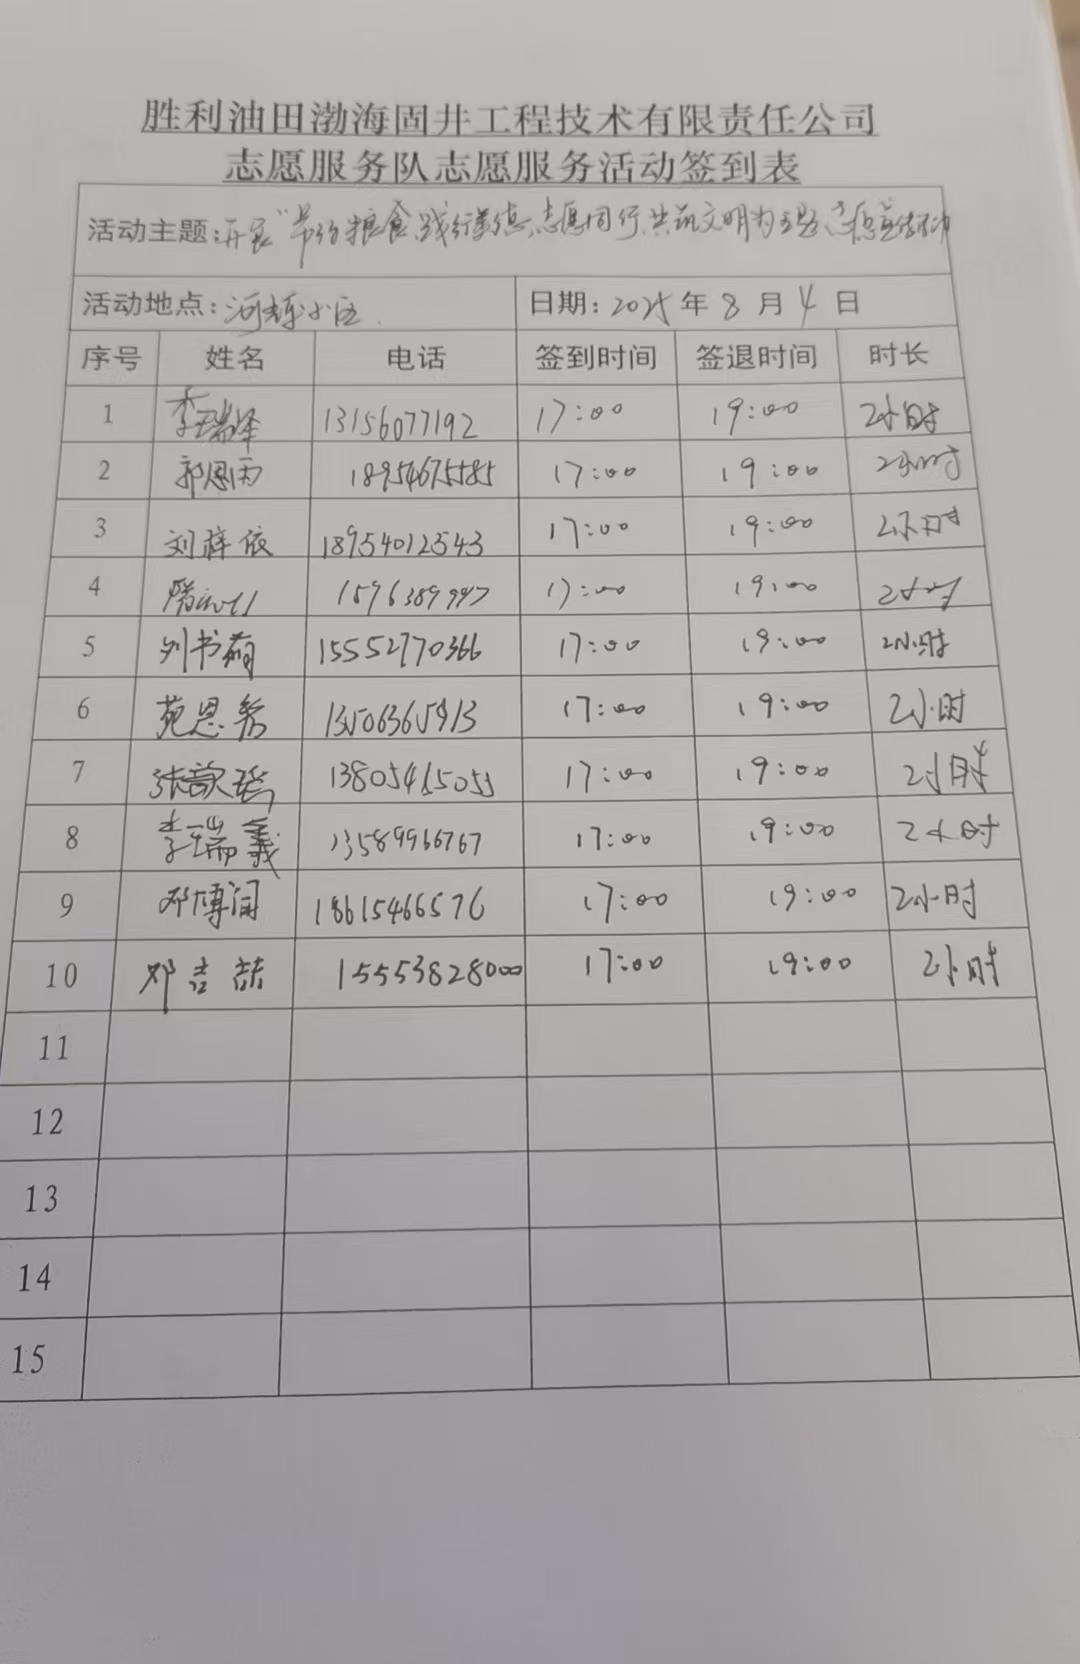 胜利油田渤海固井工程技术有限责任公司
志愿服务队志愿服务活动签到表
活动主题:开展"节约粮食、践行美德,志愿同行,共筑文明为主题志愿宣传活动
活动地点:河辛小区 日期:2025年8月4日
序号 姓名 电话 签到时间 签退时间 时长
1 李瑞泽 13156077192 17:00 19:00 2小时
2 郭恩雨 18954675585 17:00 19:00 2小时
3 刘梓依 18954012543 17:00 19:00 2小时
4 17:00 19:00 2小时
5 刘书萌 15552770366 17:00 19:00 2小时
6 苑恩希 13506365913 17:00 19:00 2小时
7 张歆瑶 17:00 19:00 2小时
8 李瑞義 13589966767 17:00 19:00 2小时
9 邓博闻 18615466576 17:00 19:00 2小时
10 邓吉喆 15553828000 17:00 19:00 2小时
11
12
13
14
15